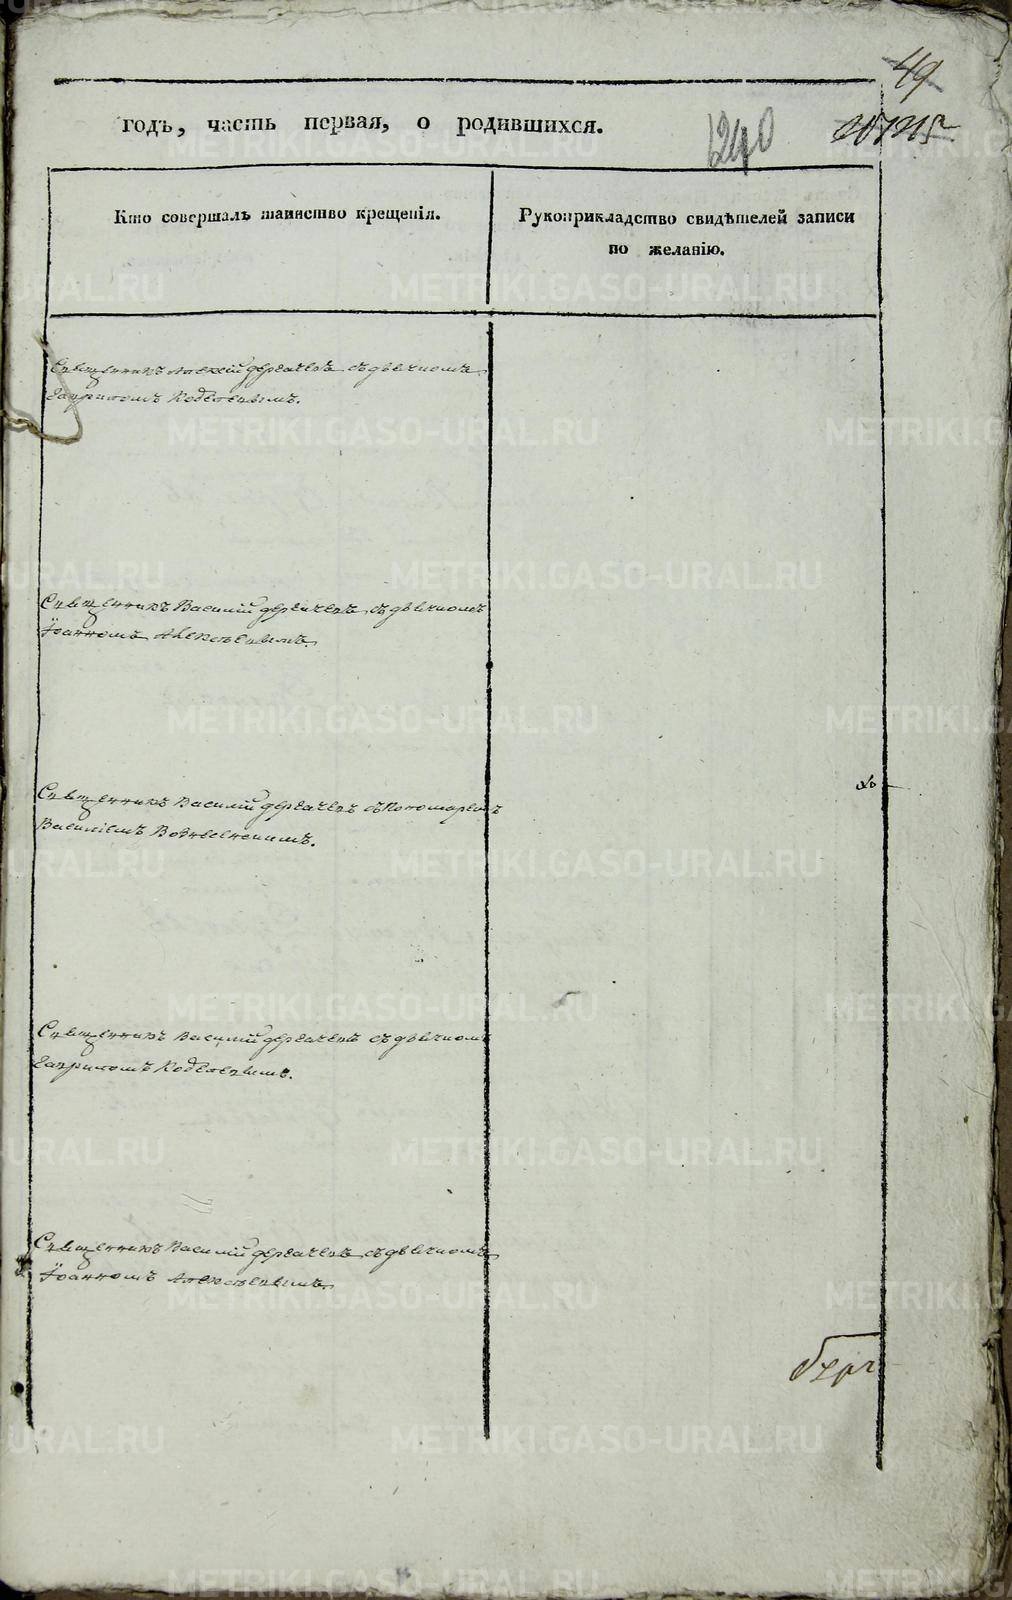 49
годъ, часть первая, о родившихся.
1240
Кто совершалъ таинство крещенія.
Рукоприкладство свидѣтелей записи
по желанію.
Священникъ Алексій Дергачевъ съ дьячкомъ
Гавриломъ Кобелевымъ.
Священникъ Василій Дергачевъ съ дьячкомъ
Іоанномъ Алексѣевымъ.
Священникъ Василій Дергачевъ съ Пономаремъ
Василіемъ Вознесенскимъ.
Священникъ Василій Дергачевъ съ дьячкомъ
Гавриломъ Кобелевымъ.
Священникъ Василій Дергачевъ съ дьячкомъ
Іоанномъ Алексѣевымъ.
METRIKI.GASO-URAL.RU